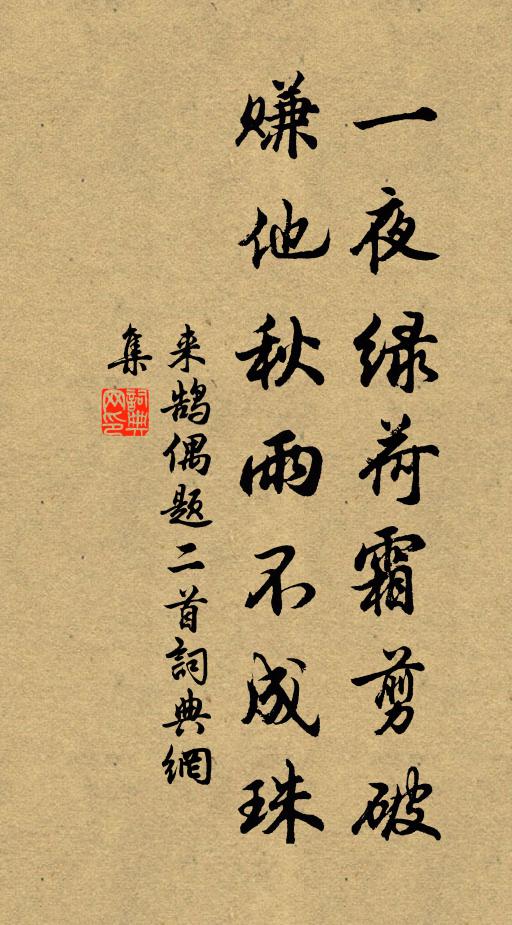 一夜绿荷霜剪破
赚他秋雨不成珠
来鹄偶题二首詞典網
集
詞典
网印